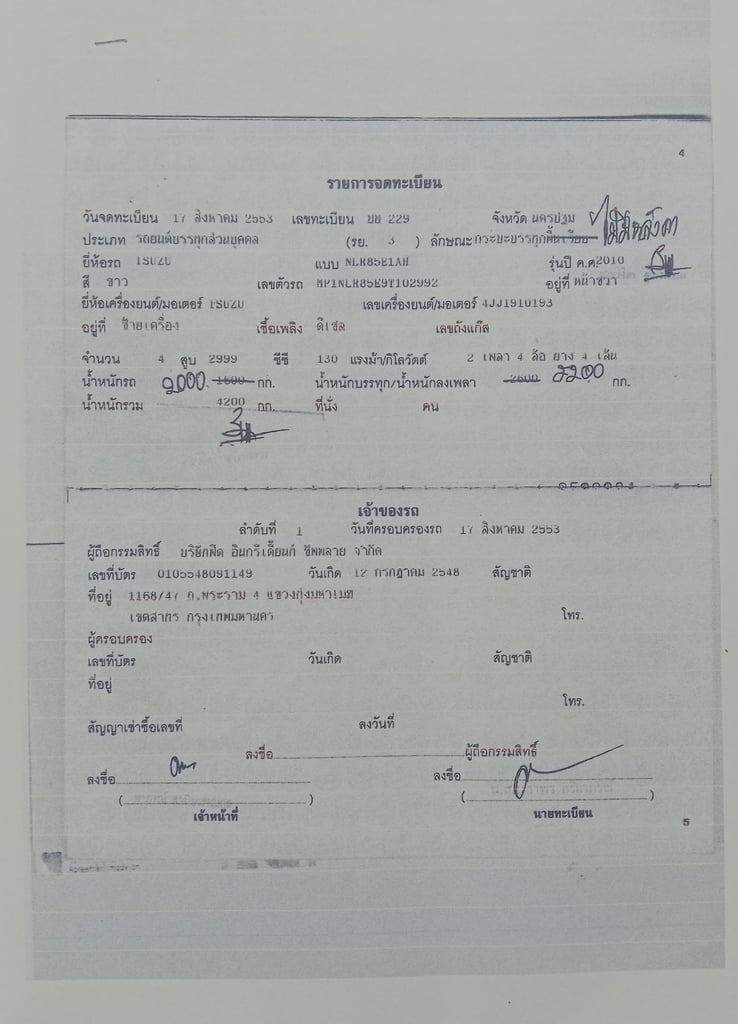 4
รายการจดทะเบียน
วันจดทะเบียน 17 สิงหาคม 2553 เลขทะเบียน บบ 229 จังหวัด นครปฐม
ประเภท รถยนต์บรรทุกส่วนบุคคล (รย. 3 ) ลักษณะ กระบะบรรทุกพื้นเรียบ ไม่มีหลังคา
ยี่ห้อรถ ISUZU แบบ NLR85E1AH รุ่นปี ค.ศ. 2010
สี ขาว เลขตัวรถ MP1NLR85E9T102992 อยู่ที่ หน้าขวา
ยี่ห้อเครื่องยนต์/มอเตอร์ ISUZU เลขเครื่องยนต์/มอเตอร์ 4JJ1910193
อยู่ที่ ซ้ายเครื่อง เชื้อเพลิง ดีเซล เลขถังแก๊ส
จำนวน 4 สูบ 2999 ซีซี 130 แรงม้า/กิโลวัตต์ 2 เพลา 4 ล้อ ยาง 4 เส้น
น้ำหนักรถ 2000 1600 กก. น้ำหนักบรรทุก/น้ำหนักลงเพลา 2600 2200 กก.
น้ำหนักรวม 4200 กก. ที่นั่ง คน
เจ้าของรถ
ลำดับที่ 1 วันที่ครอบครองรถ 17 สิงหาคม 2553
ผู้ถือกรรมสิทธิ์ บริษัทฟีด อินกรีเดี้ยนท์ ซัพพลาย จำกัด
เลขที่บัตร 0105548091149 วันเกิด 12 กรกฎาคม 2548 สัญชาติ
ที่อยู่ 1168/47 ถ.พระราม 4 แขวงทุ่งมหาเมฆ
เขตสาทร กรุงเทพมหานคร โทร.
ผู้ครอบครอง
เลขที่บัตร วันเกิด สัญชาติ
ที่อยู่
โทร.
สัญญาเช่าซื้อเลขที่ ลงวันที่
ลงชื่อ ผู้ถือกรรมสิทธิ์
ลงชื่อ ลงชื่อ
( ) ( )
เจ้าหน้าที่ นายทะเบียน
5